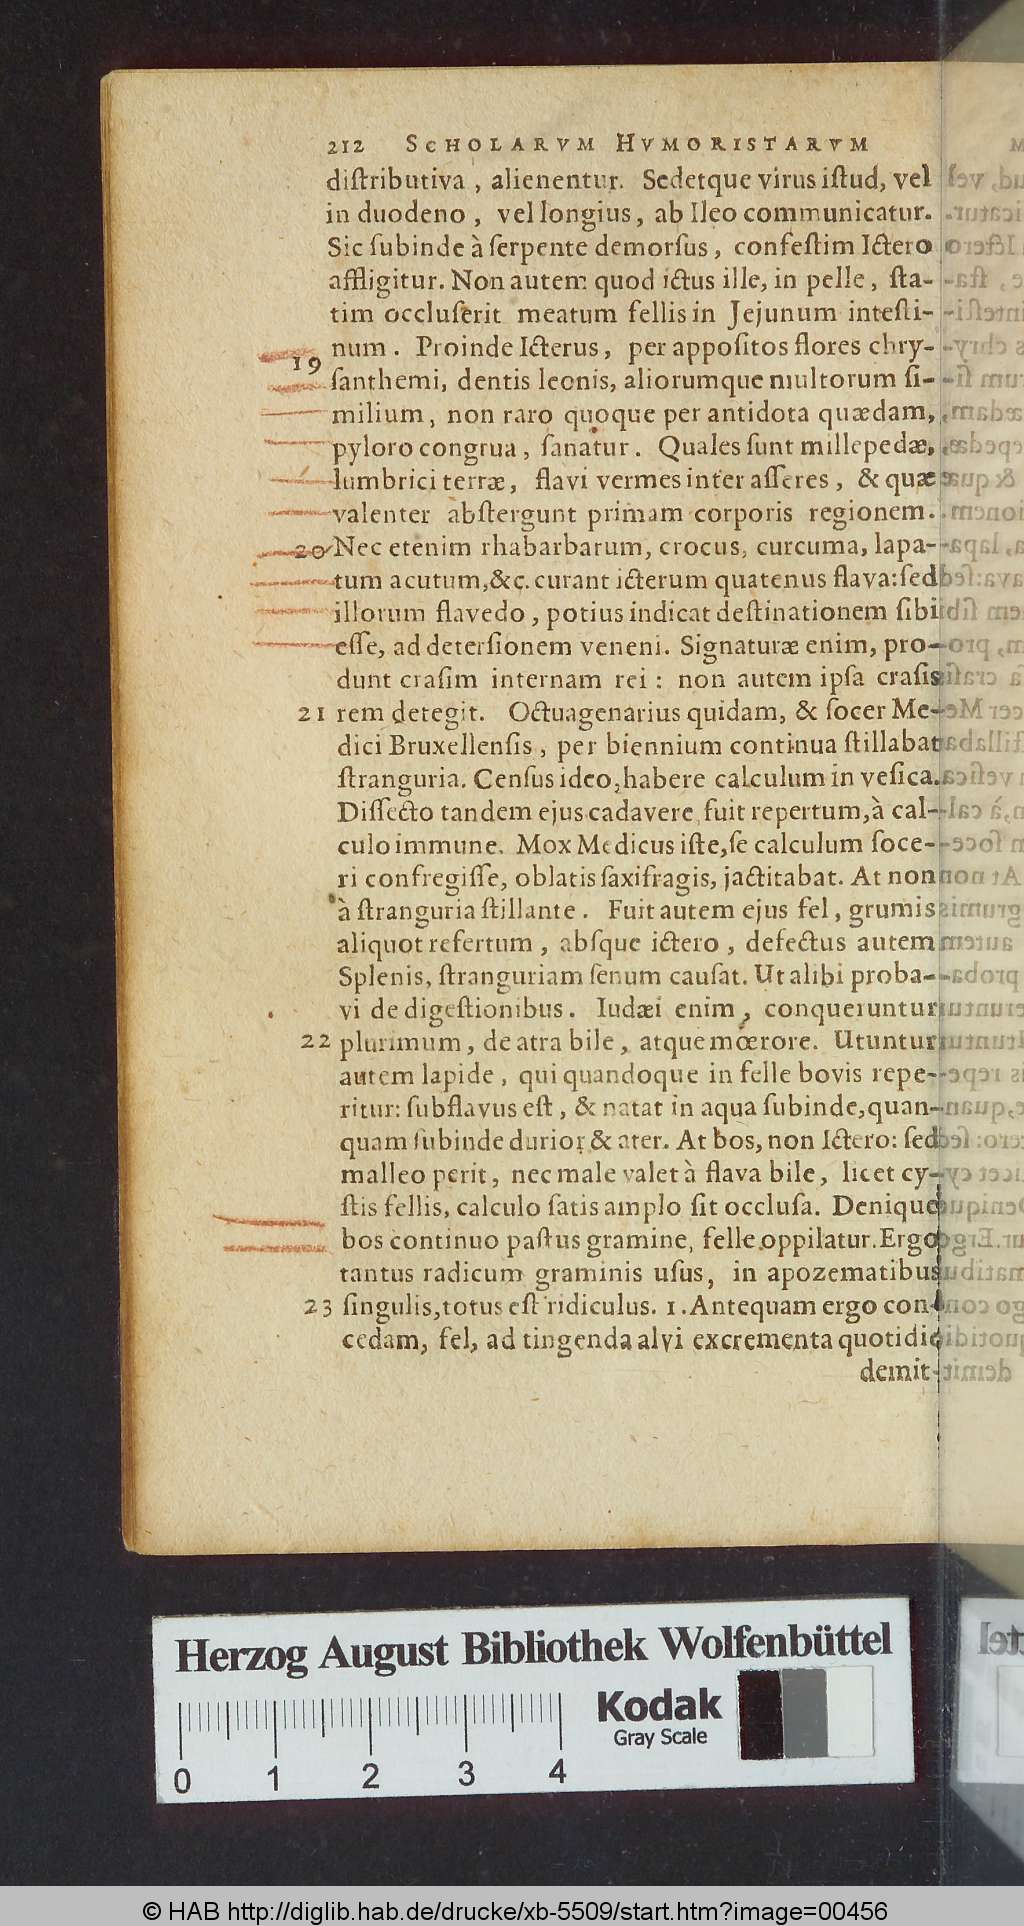 212 SCHOLARVM HVMORISTARVM
distributiva, alienentur. Sedetque virus istud, vel
in duodeno, vel longius, ab Ileo communicatur.
Sic subinde à serpente demorsus, confestim Ictero
affligitur. Non autem quod ictus ille, in pelle, sta-
tim occluserit meatum fellis in Jejunum intesti-
num. Proinde Icterus, per appositos flores chry-
19 santhemi, dentis leonis, aliorumque multorum si-
milium, non raro quoque per antidota quædam,
pyloro congrua, sanatur. Quales sunt millepedæ,
lumbrici terræ, flavi vermes inter asseres, & quæ
valenter abstergunt primam corporis regionem.
20 Nec etenim rhabarbarum, crocus, curcuma, lapa-
tum acutum, &c. curant icterum quatenus flava: sed
illorum flavedo, potius indicat destinationem sibi
esse, ad detersionem veneni. Signaturæ enim, pro-
dunt crasim internam rei: non autem ipsa crasis
21 rem detegit. Octuagenarius quidam, & socer Me-
dici Bruxellensis, per biennium continua stillabat
stranguria. Census ideo, habere calculum in vesica.
Dissecto tandem ejus cadavere, fuit repertum, à cal-
culo immune. Mox Medicus iste, se calculum soce-
ri confregisse, oblatis saxifragis, jactitabat. At non
à stranguria stillante. Fuit autem ejus fel, grumis
aliquot refertum, absque ictero, defectus autem
Splenis, stranguriam senum causat. Ut alibi proba-
vi de digestionibus. Iudæi enim, conqueruntur
22 plurimum, de atra bile, atque mœrore. Utuntur
autem lapide, qui quandoque in felle bovis repe-
ritur: subflavus est, & natat in aqua subinde, quan-
quam subinde durior & ater. At bos, non Ictero: sed
malleo perit, nec male valet à flava bile, licet cy-
stis fellis, calculo satis amplo sit occlusa. Denique
bos continuo pastus gramine, felle oppilatur. Ergo
tantus radicum graminis usus, in apozematibus
23 singulis, totus est ridiculus. 1. Antequam ergo con-
cedam, fel, ad tingenda alvi excrementa quotidie
demit-
Herzog August Bibliothek Wolfenbüttel
Kodak
Gray Scale
0 1 2 3 4
© HAB http://diglib.hab.de/drucke/xb-5509/start.htm?image=00456